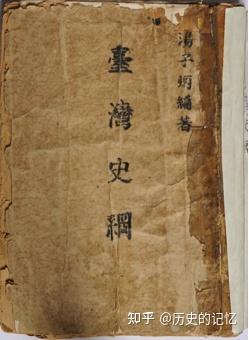 湯子炳編著
臺灣史綱
知乎 @历史的记忆